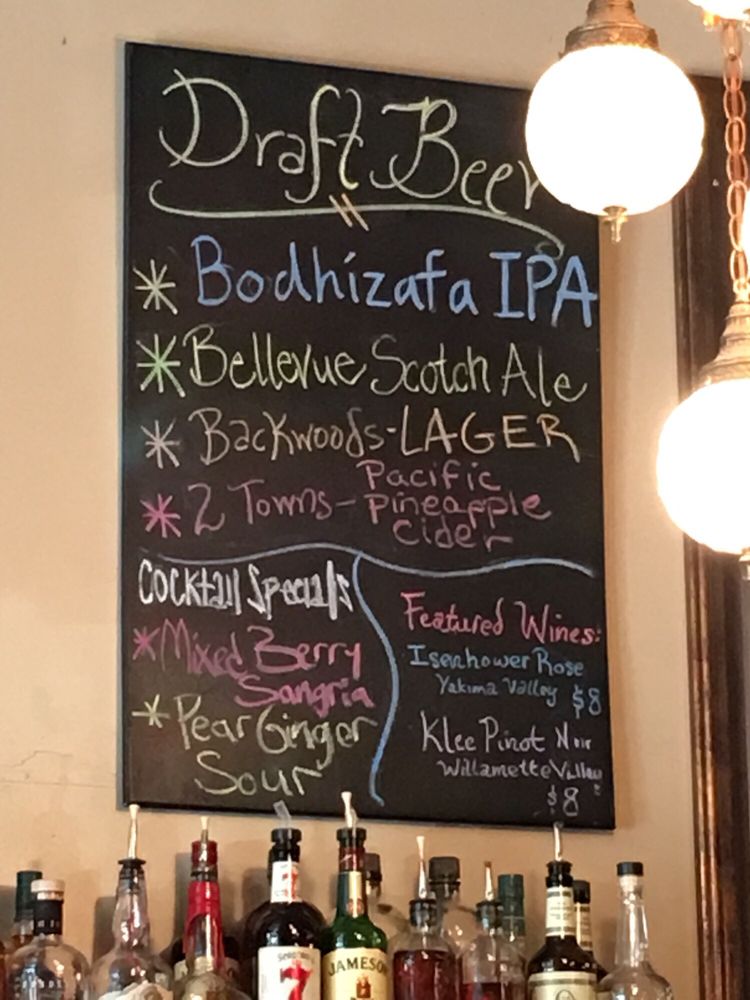 Draft Beer
Bodhizafa IPA
Bellevue Scotch Ale
Backwoods-LAGER
2 Towns-Pacific
Pineapple
Cider
Cocktail Specials
Mixed Berry
Sangria
Pear Ginger
Sour
Featured Wines:
Isenhower Rose
Yakima Valley $8
Klee Pinot Noir
Willamette Valley
$8
7
7
JAMESON